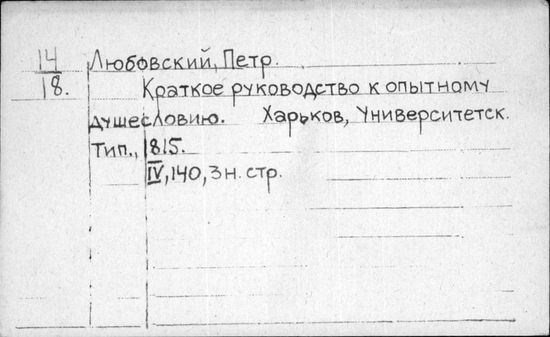 14 Любовский, Петр.
18. Краткое руководство к опытному
душесловию. Харьков, Университетск.
Тип., 1815.
IV, 140, 3 н. стр.